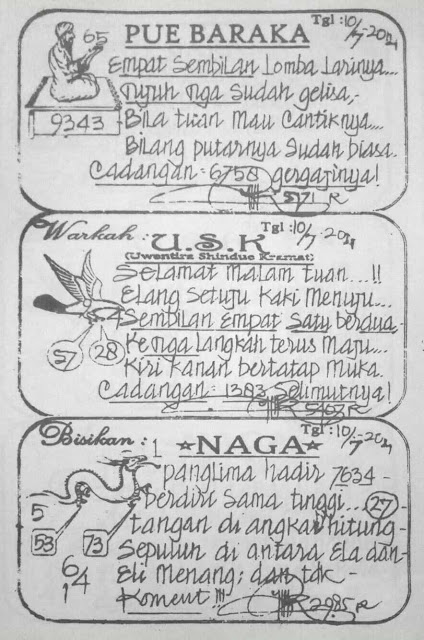 PUE BARAKA
Tgl : 10/7-2021
65
Empat Sembilan Lomba Larinya....
Tujuh tiga Sudah gelisa,-
9343
Bila tuan Mau Cantiknya....
Bilang putarnya Sudah biasa.
Cadangan = 6758 gergajinya!
Warkah :
U.S.K
Tgl : 10/7-2021
(Uwentira Shindue Kramat)
SeLamat Malam tuan....!!
Elang Setuju kaki Menuju....
Sembilan Empat Satu berdua,-
57
28
Ketiga Langkah terus Maju....
Kiri Kanan bertatap Muka.
Cadangan = 1383 Selimutnya!
Bisikan :
NAGA
Tgl : 10/7-2021
1
panglima hadir 7634-
berdiri Sama tinggi.... 27-
5
tangan di angkat hitung-
53
73
Sepuluh di antara Ela dan-
64
1
Eli Menang; dan tdk-
Koment !!!
2985